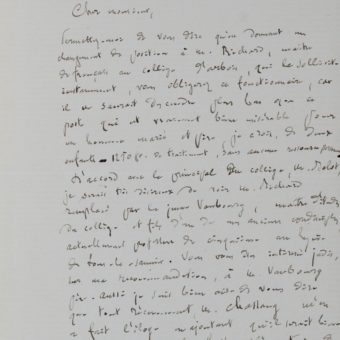 Cher monsieur,
Permettez-moi de vous dire qu'en donnant un
changement de position à M. Richard, maître
de français au collège d'Arbois, qui le sollicite
instamment, vous obligerez ce fonctionnaire, car
il ne saurait descendre plus bas que ce
poste qui est vraiment bien misérable pour
un homme marié et père, je crois, de deux
enfants. de traitement, sans aucune ressource
D'accord avec le principal du collège, M.
je serais très désireux de voir M. Richard
remplacé par le jeune Vambourg, maître d'études
du collège et fils d'un de mes anciens condisciples
actuellement professeur de cinquième au lycée
de Vous vous êtes intéressé jadis,
sur ma recommandation, à M. Vambourg
père. Aussi je suis bien aise de vous dire
que tout récemment M. m'en
a fait l'éloge en ajoutant qu'il serait bien